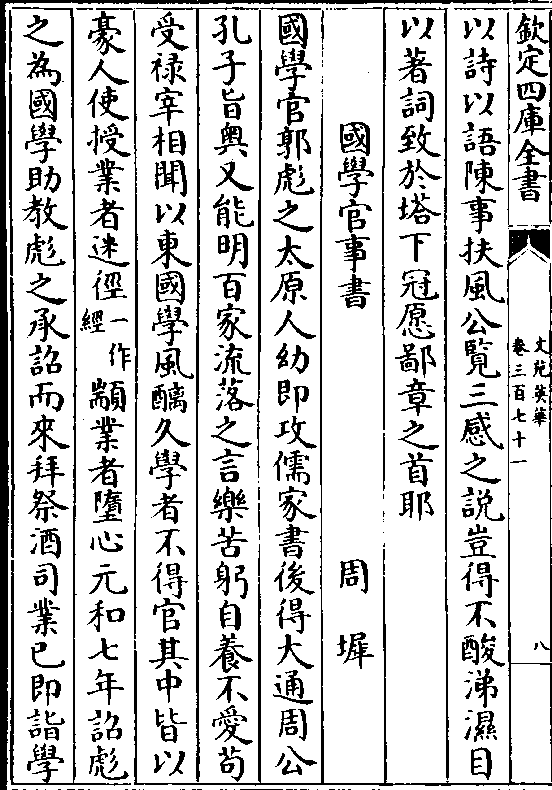 欽定四庫全書
文苑英華
卷三百七十一
八
以詩以語陳事扶風公覧三感之説豈得不酸涕濕目
以著詞致於塔下冠愿鄙章之首耶
國學官事書
周墀
國學官郭彪之太原人幼即攻儒家書後得大通周公
孔子旨奥又能明百家流落之言樂苦躬自養不愛茍
受禄宰相聞以東國學風醨久學者不得官其中皆以
豪人使授業者迷徑一作經顓業者墮心元和七年詔彪
之為國學助教彪之承詔而來拜祭酒司業已即詣學